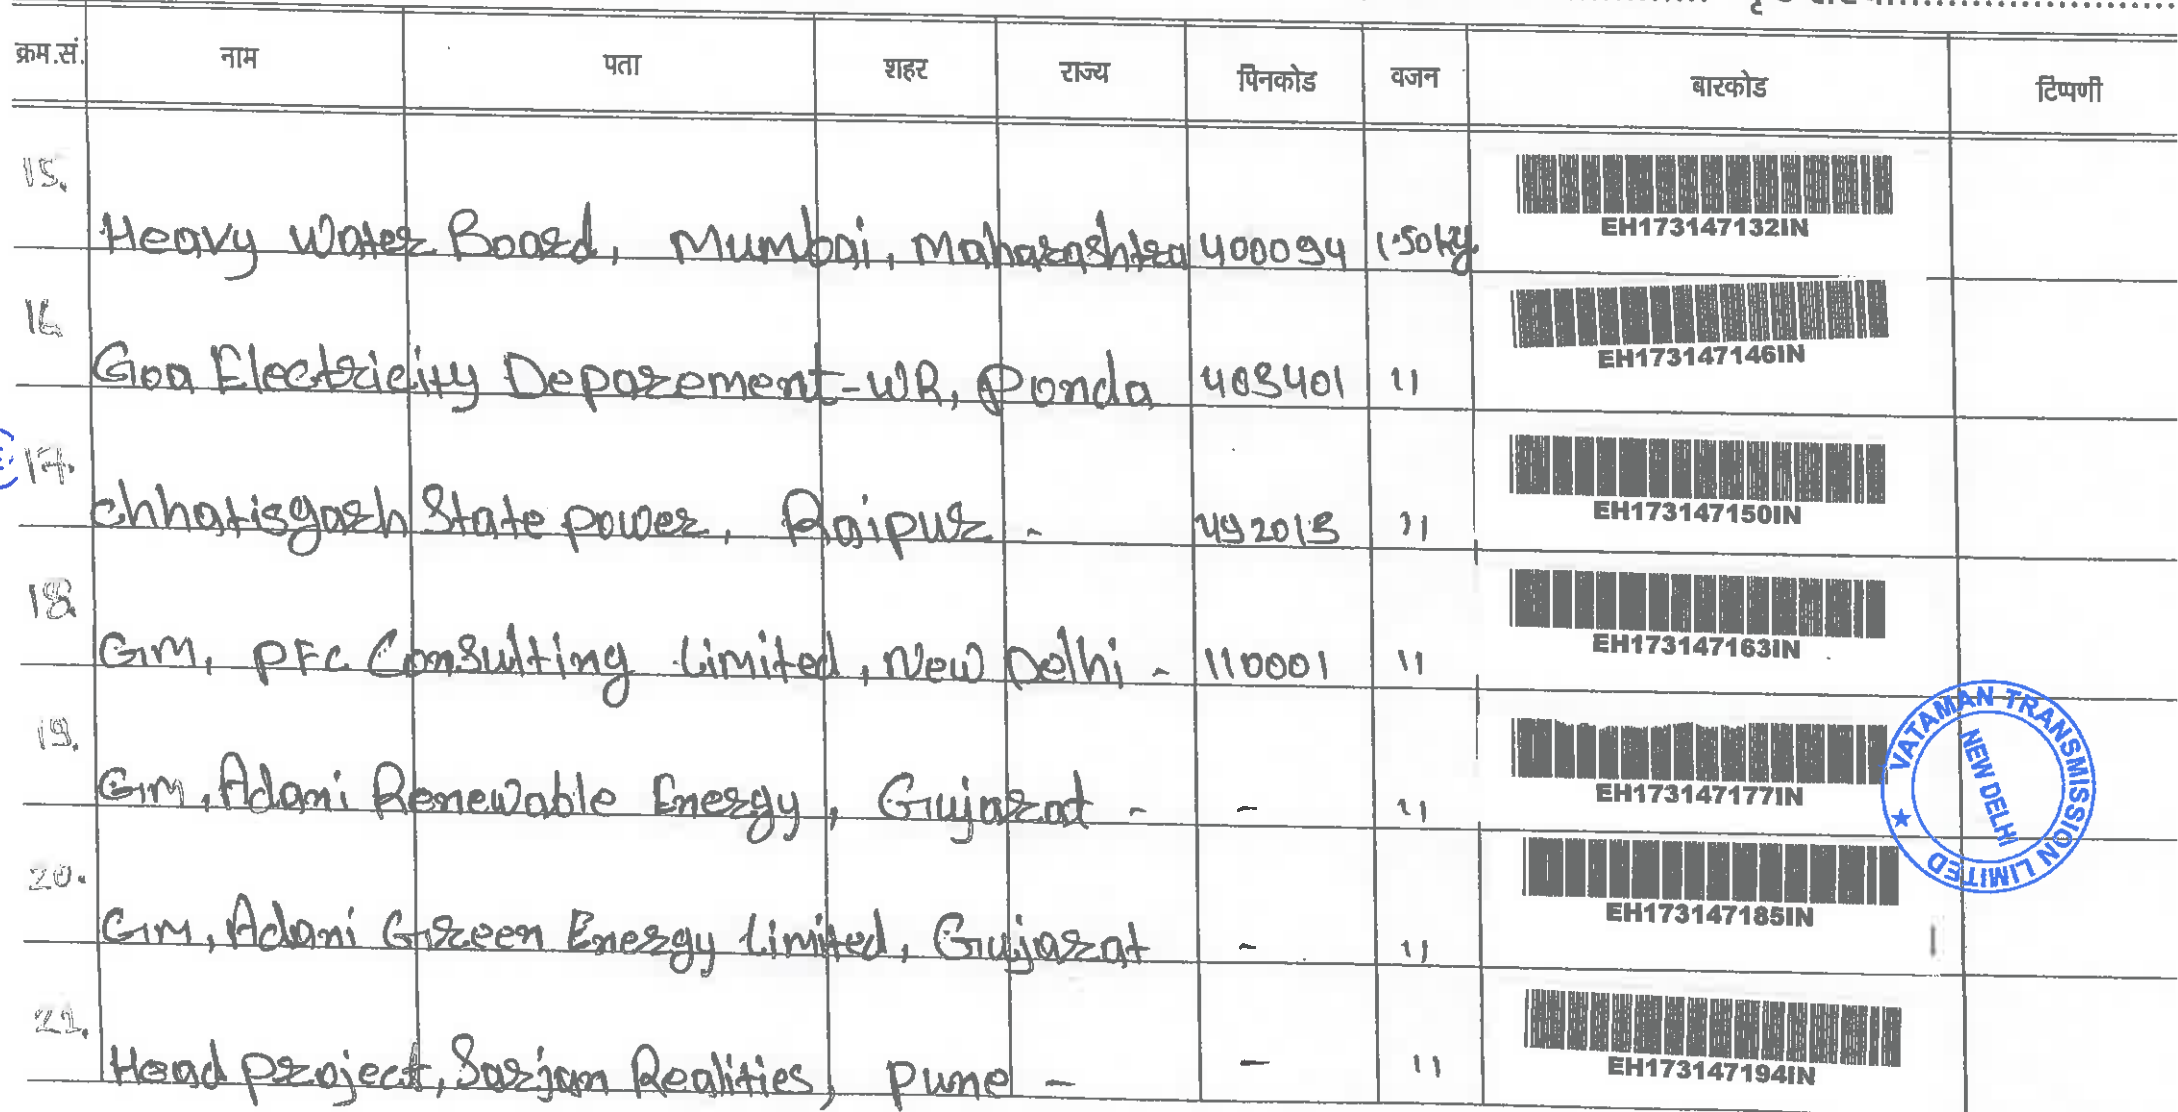 क्रम.सं. नाम पता शहर राज्य पिनकोड वजन बारकोड टिप्पणी
15. Heavy Water Board, Mumbai, Maharashtra 400094 1.50kg. EH173147132IN
16 Goa Electricity Deparement-WR, Ponda 403401 " EH173147146IN
17. Chhatisgarh State power, Raipur - 492013 " EH173147150IN
18. GM, PFC Consulting Limited, New Delhi - 110001 " EH173147163IN
19. GM, Adani Renewable Energy, Gujarat - - " EH173147177IN
VATAMAN TRANSMISSION LIMITED ★
NEW DELHI
20. GM, Adani Green Energy Limited, Gujarat - " EH173147185IN
21. Head project, Sarjan Realities, pune - - " EH173147194IN